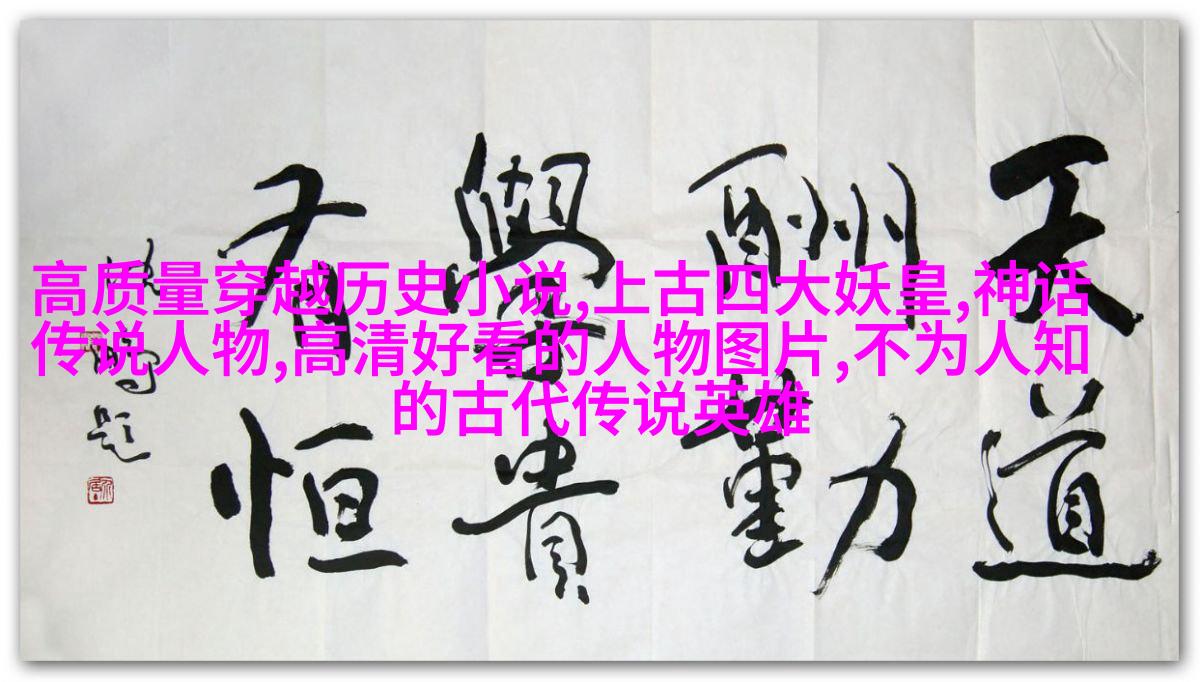 高质量穿越历史小说,上古四大妖皇,神话
传说人物,高清好看的人物图片,不为人知
的古代传说英雄
天道
酬勤
學貴
有恒
题